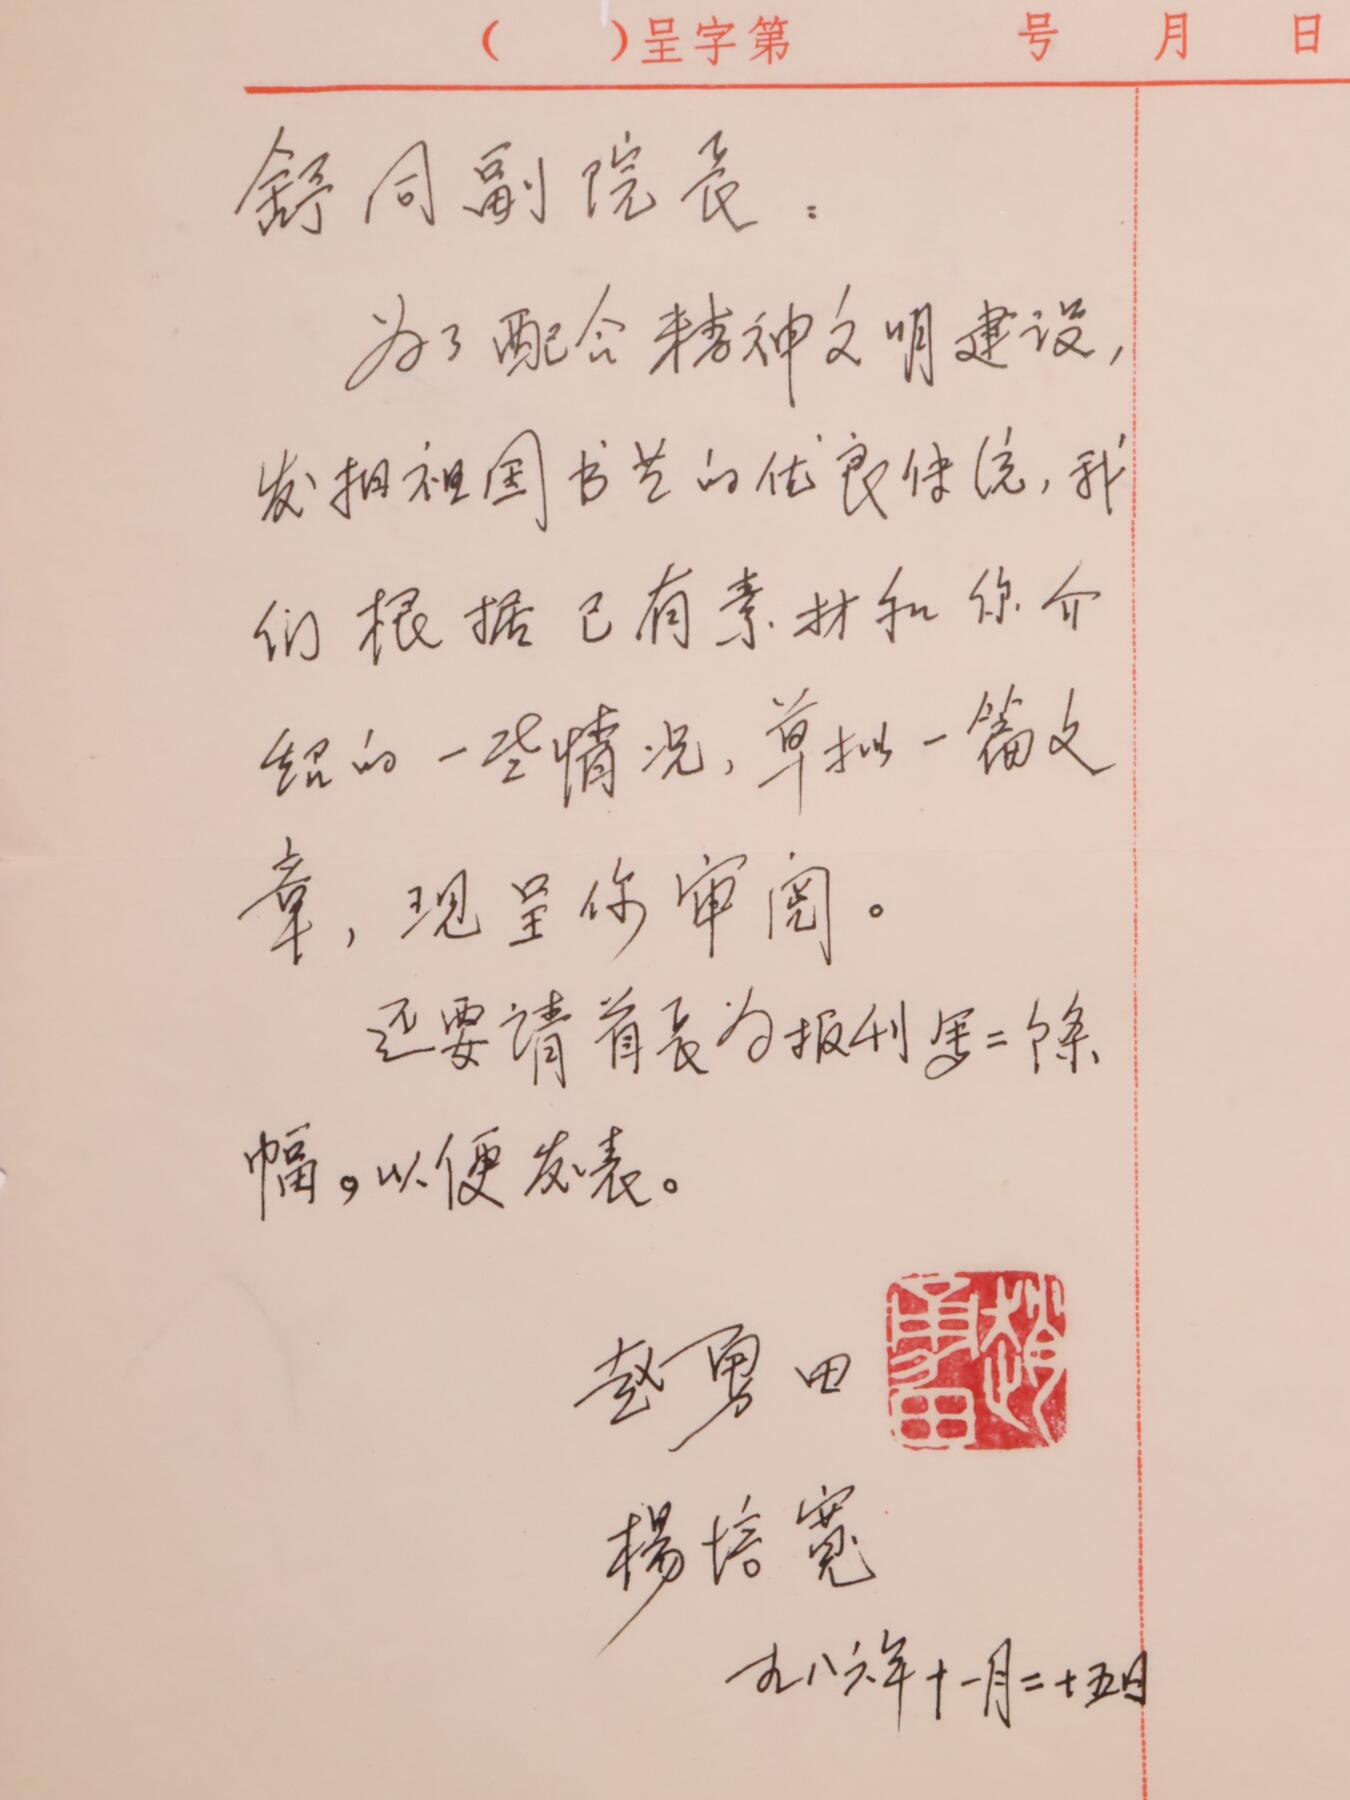 （ ）呈字第 号 月 日
舒同副院长：
为了配合精神文明建设，
发揚祖国书艺的优良传统，我
们根据已有素材和你介
绍的一些情况，草拟一篇文
章，现呈你审阅。
还要请首长为报刊写二条
幅。以便发表。
赵勇田
趙勇田
楊培寬
一九八六年十一月二十五日